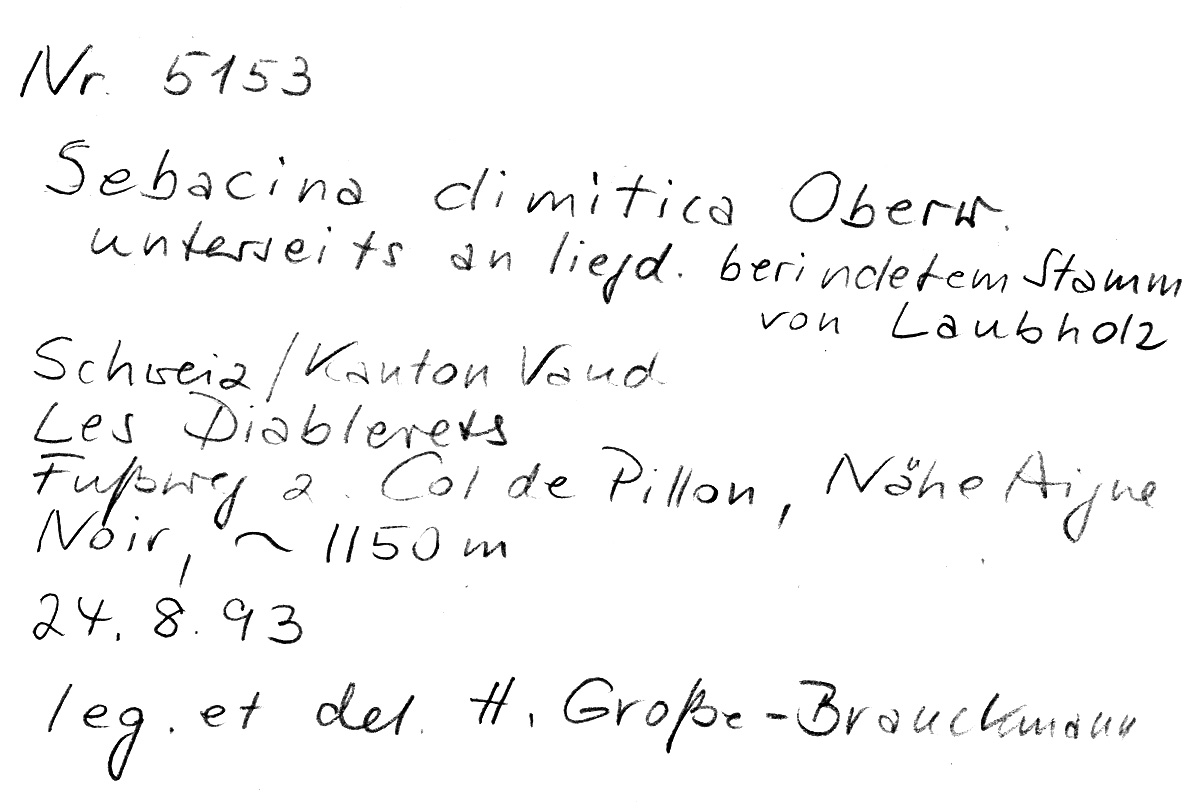 Nr. 5153
Sebacina dimitica Oberw.
unterseits an liegd. berindetem Stamm
von Laubholz
Schweiz/Kanton Vaud
Les Diablerets
Fußweg z. Col de Pillon, Nähe Aigue
Noir, ~ 1150 m
24. 8. 93
leg. et det. H. Große-Brauckmann